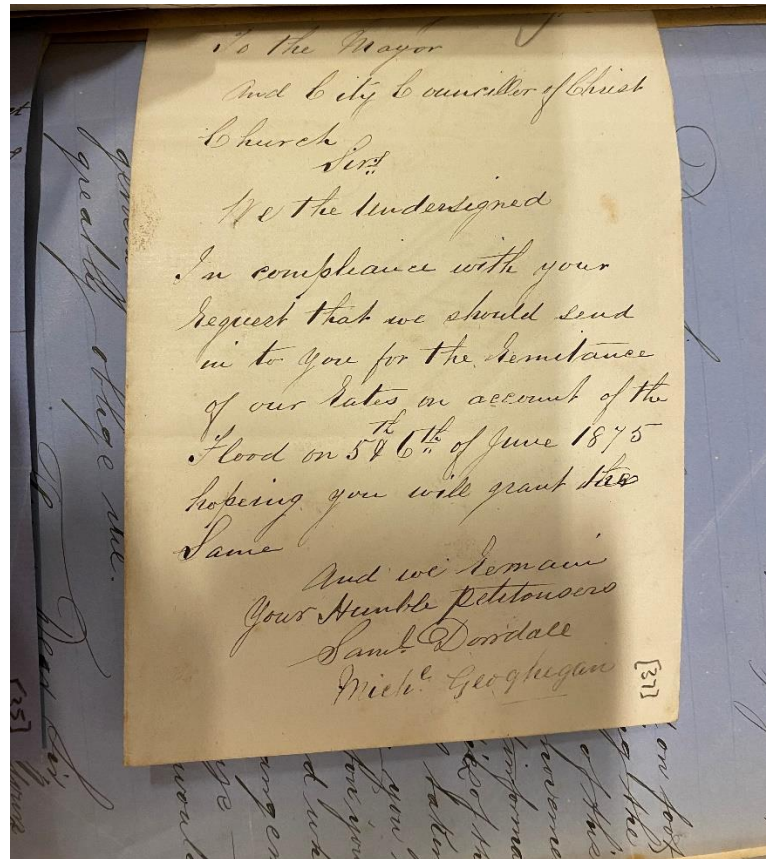 To the Mayor
And City Councillor of Christ
Church
Sirs
We the Undersigned
In compliance with your
request that we should send
in to you for the remitance
of our rates on account of the
Flood on 5th & 6th of June 1875
hopeing you will grant the
Same
And we remain
Your Humble petitonsers
Saml Dorrdale
Michl Geoghegan
[37]
greatly oblige me.
Dear Sir
[25]
on foot
of this
informa
you
would